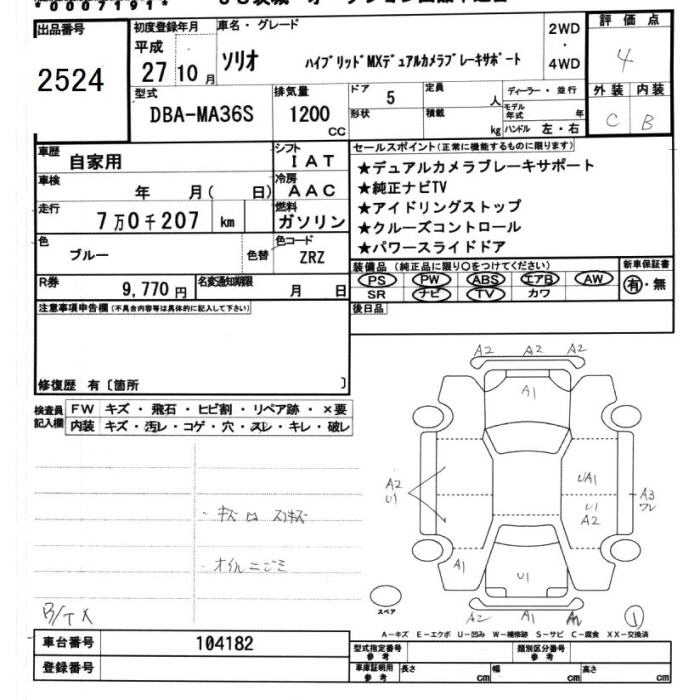 出品番号
2524
初度登録年月
平成
27 10月
車名・グレード
ソリオ ハイブリッドMXデュアルカメラブレーキサポート
2WD
・
4WD
評価点
4
外装 内装
C B
型式
DBA-MA36S
排気量
1200
CC
ドア 5
形状
定員 人
積載 kg
ディーラー・並行
モデル年式 年
ハンドル 左・右
車歴
自家用
シフト
IAT
車検
年 月( 日)
冷房
AAC
走行
7万0千207 km
燃料
ガソリン
色
ブルー
色替
色コード
ZRZ
R券
9,770円
名変通知期限
月 日
セールスポイント(正常に機能するものに限ります)
★デュアルカメラブレーキサポート
★純正ナビTV
★アイドリングストップ
★クルーズコントロール
★パワースライドドア
装備品(純正品に限り○をつけてください)
PS PW ABS エアB AW
SR ナビ TV カワ
新車保証書
有・無
後日品
注意事項申告欄(不具合内容等は具体的に記入して下さい)
修復歴 有〔箇所 〕
検査員記入欄
FW キズ・飛石・ヒビ割・リペア跡・×要
内装 キズ・汚レ・コゲ・穴・スレ・キレ・破レ
オイルニジミ
B/TX
A2 A2 A2
A1
A2
U1
UA1
U1
A2
A3
ワレ
A1
U1
A2 A1
スペア
1
A-キズ E-エクボ U-凹み W-補修跡 S-サビ C-腐食 XX-交換済
車台番号
104182
登録番号
型式指定番号
参考
類別区分番号
参考
車庫証明用
参考
長さ cm
幅 cm
高さ cm